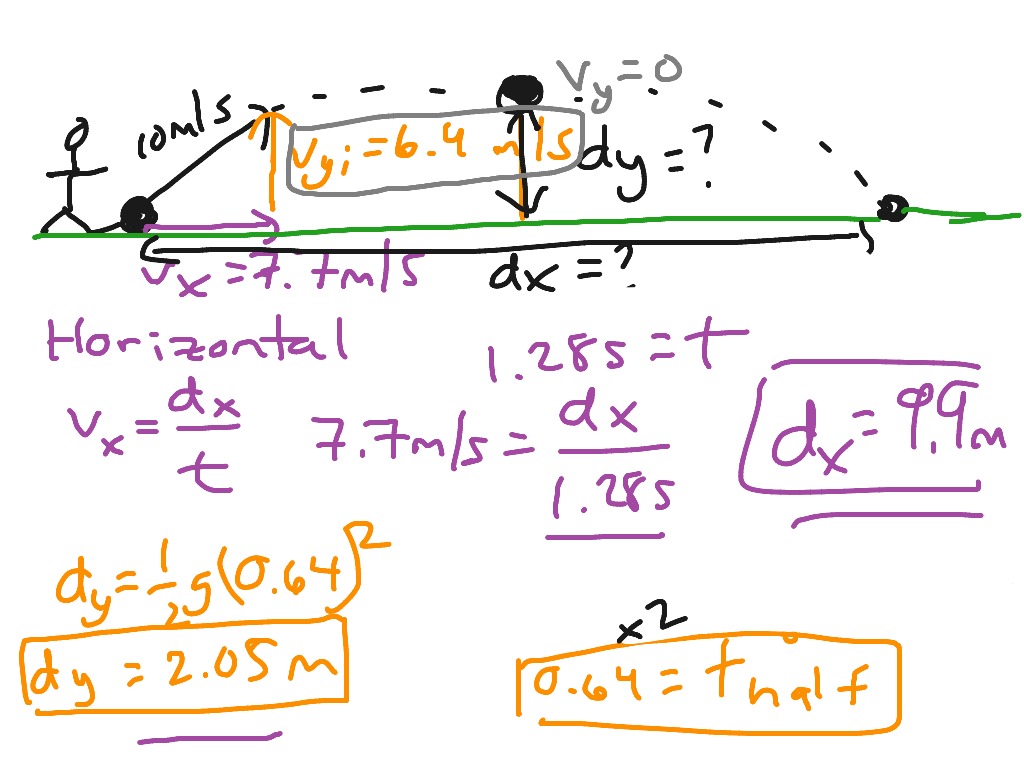 10m/s
vy=0
vyi=6.4 m/s
dy=?
vx=7.7m/s
dx=?
Horizontal
1.28s=t
vx=dx/t
7.7m/s=dx/1.28s
dx=9.9m
dy=1/2g(0.64)²
x2
dy=2.05m
0.64=thalf